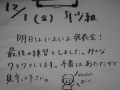 12/1(金) 年少組
明日はいよいよ発表会！
最後の練習をしました。みんな
ワクワクしてます。本番はあたたかく
見守って下さい。